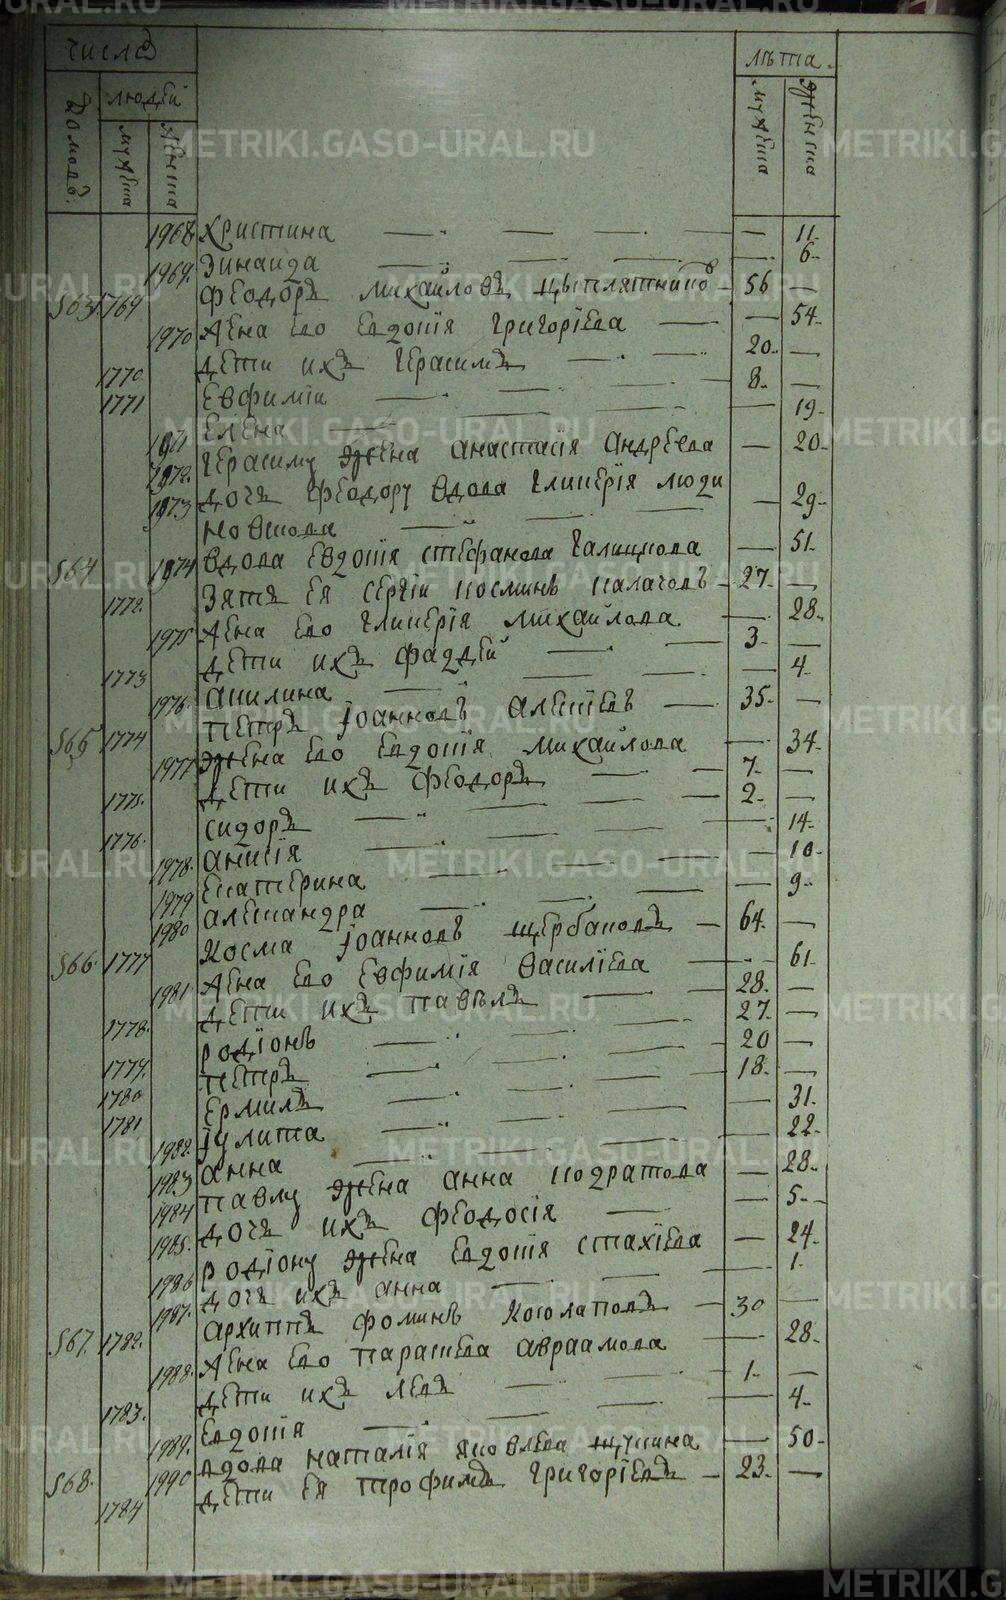 числѡ
лѣта.
людей
домовъ.
мужеска
женска
мужеска
женска
1968 христина 11.
1969. зинаида 6.
563 1769 Феодоръ михайловъ цыплятниковъ 56
1970 жена ево евдокія григоріева 54.
1770 дети ихъ герасимъ 20.
1771 евфимій 8.
1971 елена 19.
1972. герасиму жена анастасія андреева 20.
1973 дочь Феодору вдова гликерія людиновскова 29.
564 1974 вдова евдокія стефанова галицкова 51.
1772. зять ея сергій косминъ калачовъ 27.
1975 жена ево гликерія михайлова 28.
1773 дети ихъ фаддей 3.
1976. акилина 4.
565 1774 петръ іоанновъ алексіевъ 35.
1977 жена ево евдокія михайлова 34.
1775. дети ихъ феодоръ 7.
1776. сидоръ 2.
1978. анисія 14.
1979 екатерина 10.
1980 александра 9.
566 1777 косма іоанновъ щербаковъ 64.
1981 жена ево евфимія василіева 61.
1778. дети ихъ павелъ 28.
1779. родіонъ 27.
1780 петръ 20
1781 ермилъ 18.
1982. іулита 31.
1983 анна 22.
1984 павлу жена анна кодратова 28.
1985. дочь ихъ феодосія 5.
1986 родіону жена евдокія стахіева 24.
1987. дочь ихъ анна 1.
567. 1782. архиппъ фоминъ косолаповъ 30
1988. жена ево парасьева авраамова 28.
1783. дети ихъ левъ 1.
1989. евдокія 4.
568. 1990 вдова наталія яковлева щукина 50.
1784 дети ея трофимъ григоріевъ 23.
METRIKI.GASO-URAL.RU